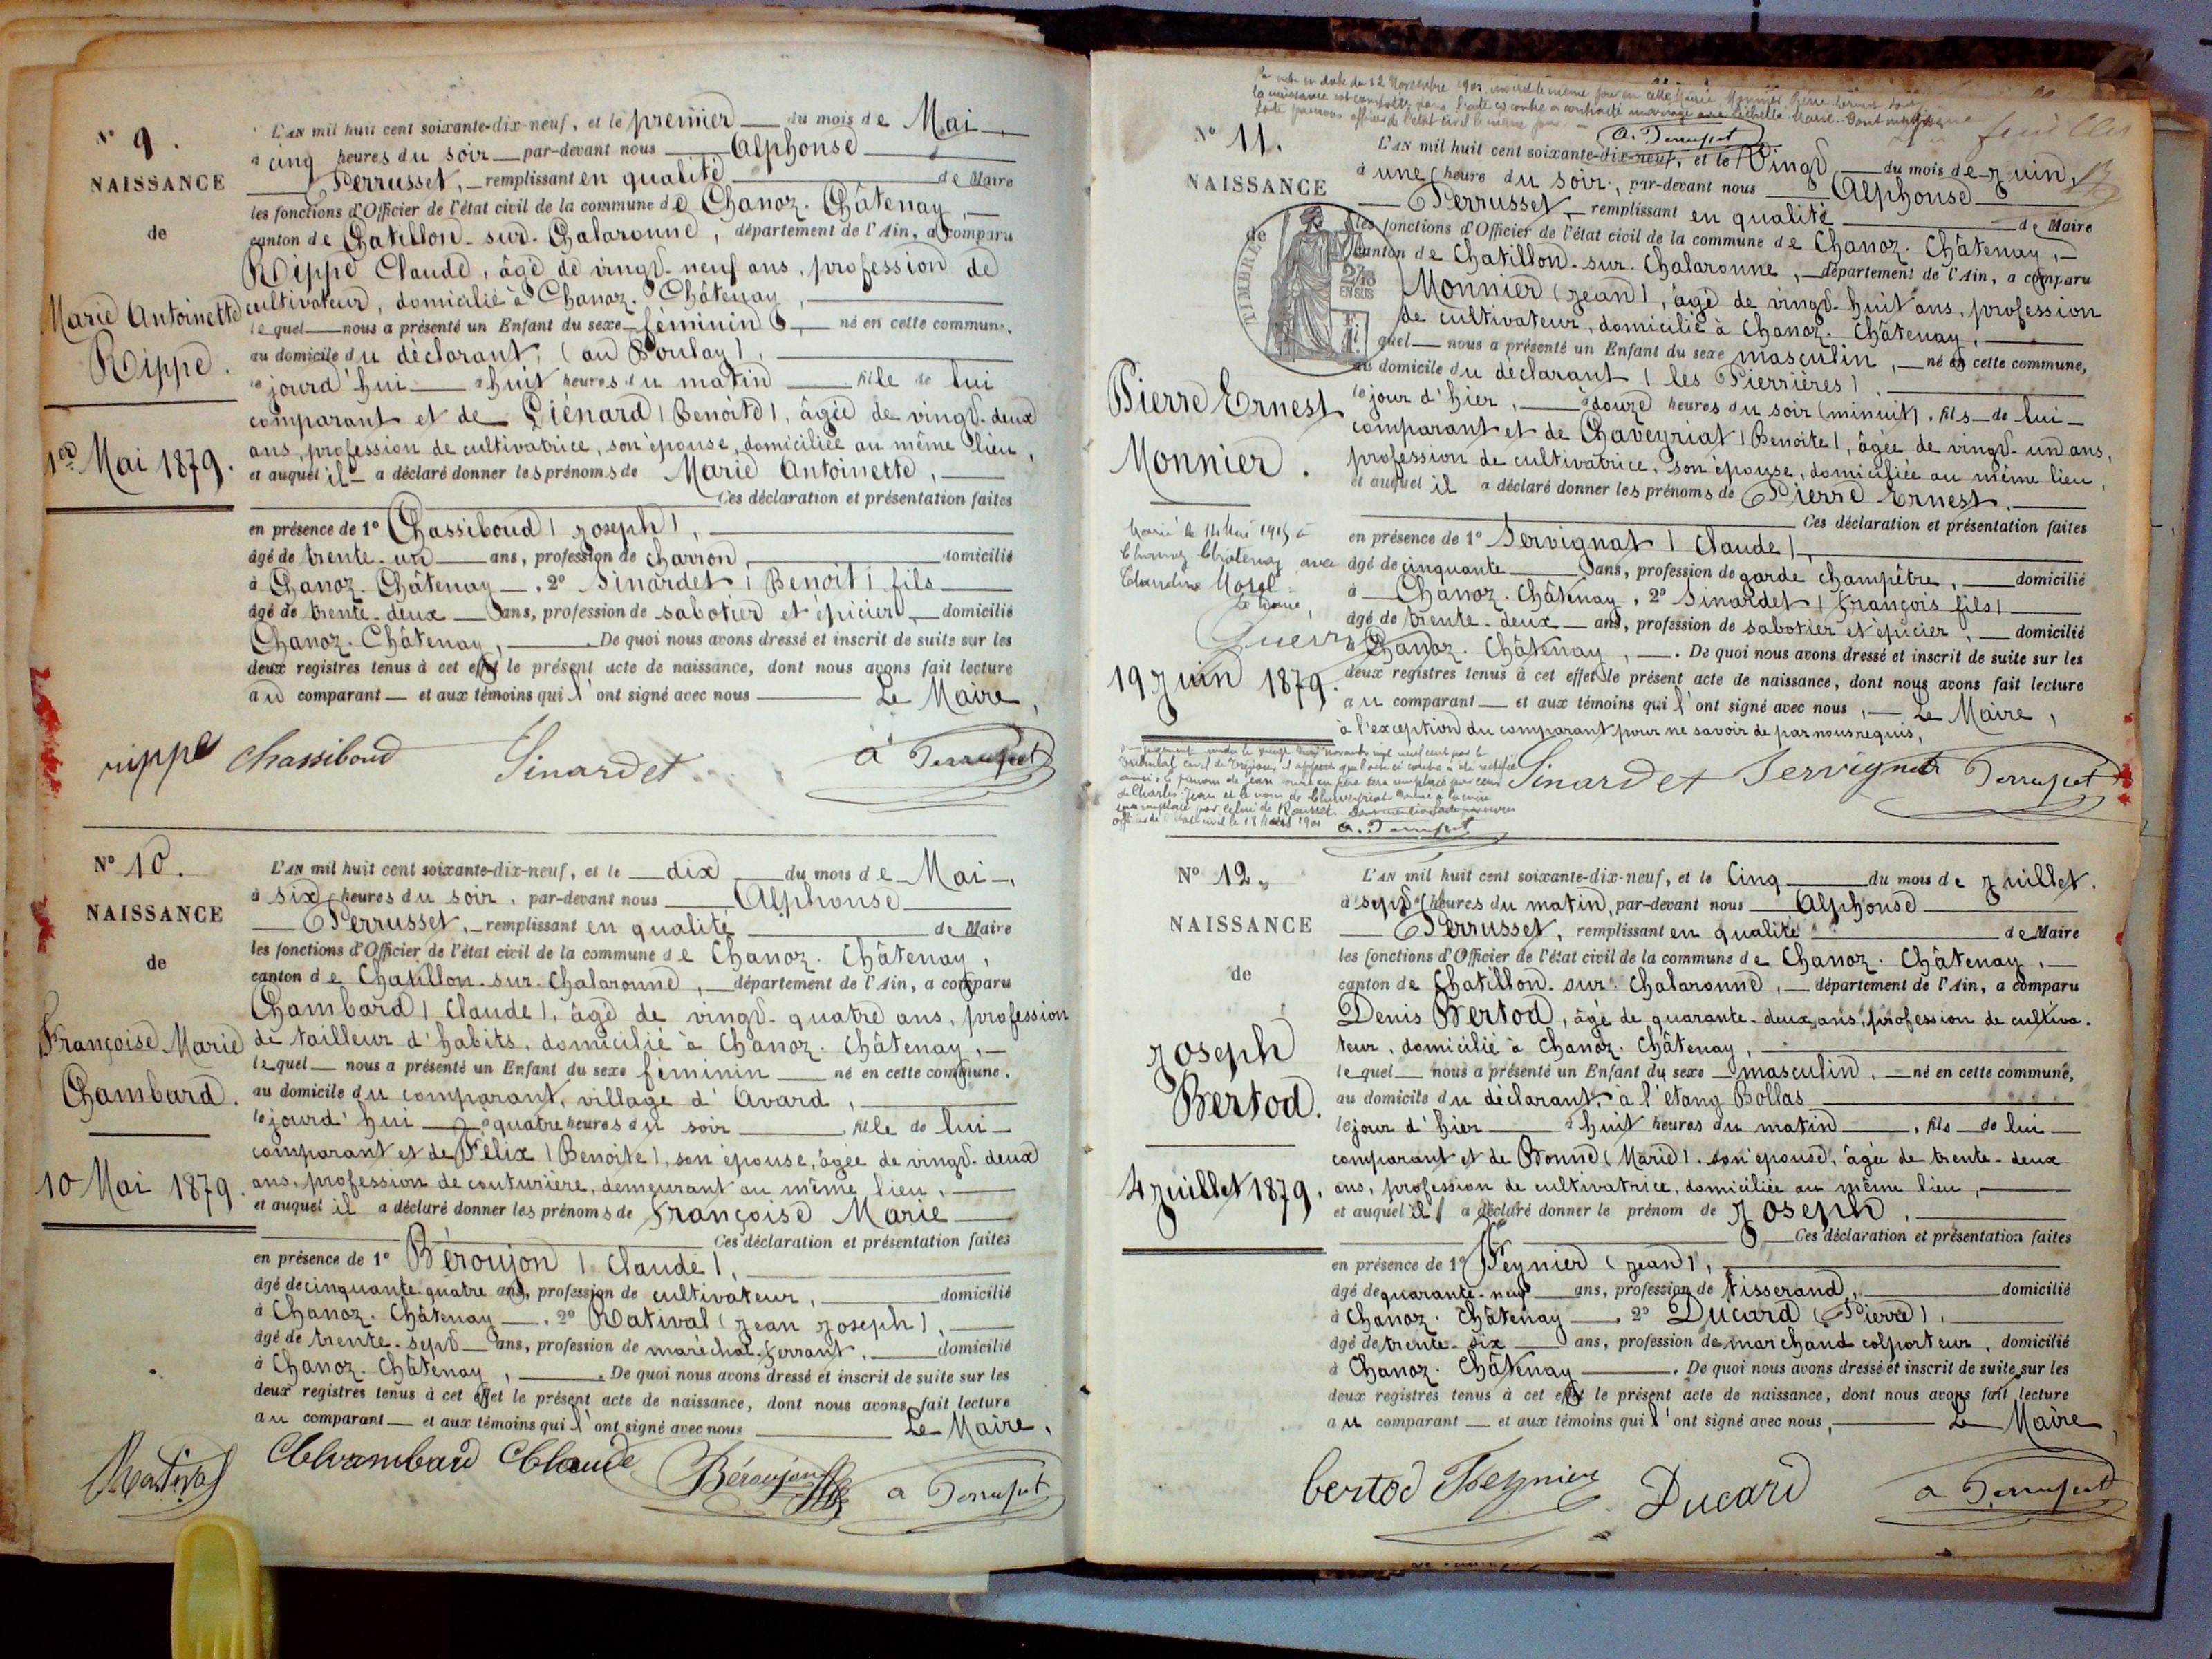 N° 9.
NAISSANCE
de
Marie Antoinette
Rippe.
1er Mai 1879.
L'AN mil huit cent soixante-dix-neuf, et le premier du mois de Mai
à cinq heures du soir par-devant nous Alphonse
Perrusset, remplissant en qualité de Maire
les fonctions d'Officier de l'état civil de la commune de Chanoz-Châtenay,
canton de Chatillon-sur-Chalaronne, département de l'Ain, a comparu
Rippe Claude, âgé de vingt-neuf ans, profession de
cultivateur, domicilié à Chanoz-Châtenay,
lequel nous a présenté un Enfant du sexe féminin, né en cette commune,
au domicile du déclarant, (au Poulay),
le jourd'hui à huit heures du matin fille de lui
comparant et de Liénard (Benoite), âgée de vingt-deux
ans, profession de cultivatrice, son épouse, domiciliée au même lieu,
et auquel il a déclaré donner les prénoms de Marie Antoinette,
Ces déclaration et présentation faites
en présence de 1° Chassiboud (Joseph),
âgé de trente-un ans, profession de charron, domicilié
à Chanoz-Châtenay, 2° Sinardet (Benoit) fils
âgé de trente-deux ans, profession de sabotier et épicier, domicilié
Chanoz-Châtenay, De quoi nous avons dressé et inscrit de suite sur les
deux registres tenus à cet effet le présent acte de naissance, dont nous avons fait lecture
au comparant et aux témoins qui l'ont signé avec nous Le Maire,
rippe Chassiboud Sinardet a Perrusset
N° 10.
NAISSANCE
de
Françoise Marie
Chambard.
10 Mai 1879.
L'AN mil huit cent soixante-dix-neuf, et le dix du mois de Mai,
à six heures du soir, par-devant nous Alphonse
Perrusset, remplissant en qualité de Maire
les fonctions d'Officier de l'état civil de la commune de Chanoz-Châtenay,
canton de Chatillon-sur-Chalaronne, département de l'Ain, a comparu
Chambard (Claude), âgé de vingt-quatre ans, profession
de tailleur d'habits, domicilié à Chanoz-Châtenay,
lequel nous a présenté un Enfant du sexe féminin né en cette commune.
au domicile du comparant, village d'Avard,
le jourd'hui à quatre heures du soir fille de lui
comparant et de Félix (Benoite), son épouse, âgée de vingt-deux
ans, profession de couturière, demeurant au même lieu,
et auquel il a déclaré donner les prénoms de Françoise Marie
Ces déclaration et présentation faites
en présence de 1° Béroujon (Claude),
âgé de cinquante-quatre ans, profession de cultivateur, domicilié
à Chanoz-Châtenay, 2° Rativat (Jean Joseph),
âgé de trente-sept ans, profession de maréchal-ferrant, domicilié
à Chanoz-Châtenay, De quoi nous avons dressé et inscrit de suite sur les
deux registres tenus à cet effet le présent acte de naissance, dont nous avons fait lecture
au comparant et aux témoins qui l'ont signé avec nous Le Maire,
Chambard Claude Béroujon a Perrusset
feuillet
a. Perrusset
N° 11.
NAISSANCE
de
TIMBRE
2/10
EN SUS
Pierre Ernest
Monnier.
Marié le 14 Mai 1915 à
Chanoz Châtenay avec
Claudine Morel
Le Maire,
19 Juin 1879.
L'AN mil huit cent soixante-dix-neuf, et le Vingt du mois de Juin,
à une heure du soir, par-devant nous Alphonse
Perrusset, remplissant en qualité de Maire
les fonctions d'Officier de l'état civil de la commune de Chanoz-Châtenay,
canton de Chatillon-sur-Chalaronne, département de l'Ain, a comparu
Monnier (Jean), âgé de vingt-huit ans, profession
de cultivateur, domicilié à Chanoz-Châtenay,
quel nous a présenté un Enfant du sexe masculin, né en cette commune,
au domicile du déclarant (les Pierrières).
le jour d'hier, à douze heures du soir (minuit), fils de lui
comparant et de Chaveyriat (Benoite), âgée de vingt-un ans,
profession de cultivatrice, son épouse, domiciliée au même lieu,
et auquel il a déclaré donner les prénoms de Pierre Ernest.
Ces déclaration et présentation faites
en présence de 1° Servignat (Claude),
âgé de cinquante ans, profession de garde champêtre, domicilié
à Chanoz-Châtenay, 2° Sinardet (François fils)
âgé de trente-deux ans, profession de sabotier et épicier, domicilié
à Chanoz-Châtenay, De quoi nous avons dressé et inscrit de suite sur les
deux registres tenus à cet effet le présent acte de naissance, dont nous avons fait lecture
au comparant et aux témoins qui l'ont signé avec nous, Le Maire,
à l'exception du comparant pour ne savoir de par nous requis,
Sinardet Servignat Perrusset
a. Perrusset
N° 12.
NAISSANCE
de
Joseph
Bertod.
4 Juillet 1879.
L'AN mil huit cent soixante-dix-neuf, et le Cinq du mois de Juillet,
à sept heures du matin, par-devant nous Alphonse
Perrusset, remplissant en qualité de Maire
les fonctions d'Officier de l'état civil de la commune de Chanoz-Châtenay,
canton de Chatillon-sur-Chalaronne, département de l'Ain, a comparu
Denis Bertod, âgé de quarante-deux ans, profession de cultiva-
teur, domicilié à Chanoz-Châtenay,
lequel nous a présenté un Enfant du sexe masculin, né en cette commune,
au domicile du déclarant, à l'étang Bollas
le jour d'hier à huit heures du matin, fils de lui
comparant et de Bonne (Marie), son épouse, âgée de trente-deux
ans, profession de cultivatrice, domiciliée au même lieu,
et auquel il a déclaré donner le prénom de Joseph,
Ces déclaration et présentation faites
en présence de 1° Peynier (Jean),
âgé de quarante-neuf ans, profession de tisserand, domicilié
à Chanoz-Châtenay, 2° Ducard (Pierre),
âgé de trente-six ans, profession de marchand colporteur, domicilié
à Chanoz-Châtenay. De quoi nous avons dressé et inscrit de suite sur les
deux registres tenus à cet effet le présent acte de naissance, dont nous avons fait lecture
au comparant et aux témoins qui l'ont signé avec nous, Le Maire,
bertod Peynier Ducard a Perrusset